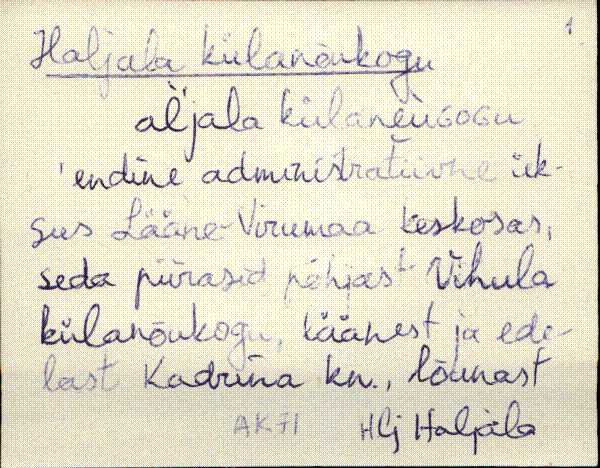 1
Haljala külanõukogu
àl'jala külanèuGoGu
'endine administratiivne ük-
sus Lääne-Virumaa keskosas,
seda piirasid põhjast Vihula
külanõukogu, läänest ja ede-
last Kadrina kn., lõunast
AK71 Hlj Haljala